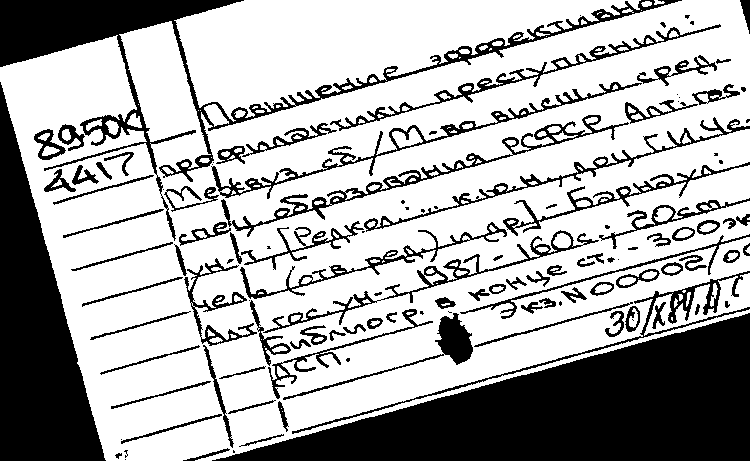 Повышение эффективно
89-50К профилактики преступлений:
4417 Межвуз. сб. / М-во высш. и сред.
спец. образования РСФСР, Алт. гос.
ун-т; [Редкол.: ... к.ю.н., доц. Г.И. Че-
чель (отв. ред.) и др.]. - Барнаул:
Алт. гос. ун-т, 1987. - 160 с.; 20 см.
Библиогр. в конце ст. - 300 эк
ДСП. Экз. N 00002/00
30/X89. А.С